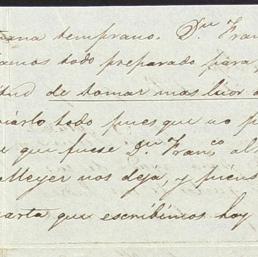 ñana temprano. Dn. Fran
amos todo preparado para
itud de tomar mas licor
iarlo todo pues que no p
e que fuese Dn. Franco al
Meyer nos deja, y
arta que escribimos hoy